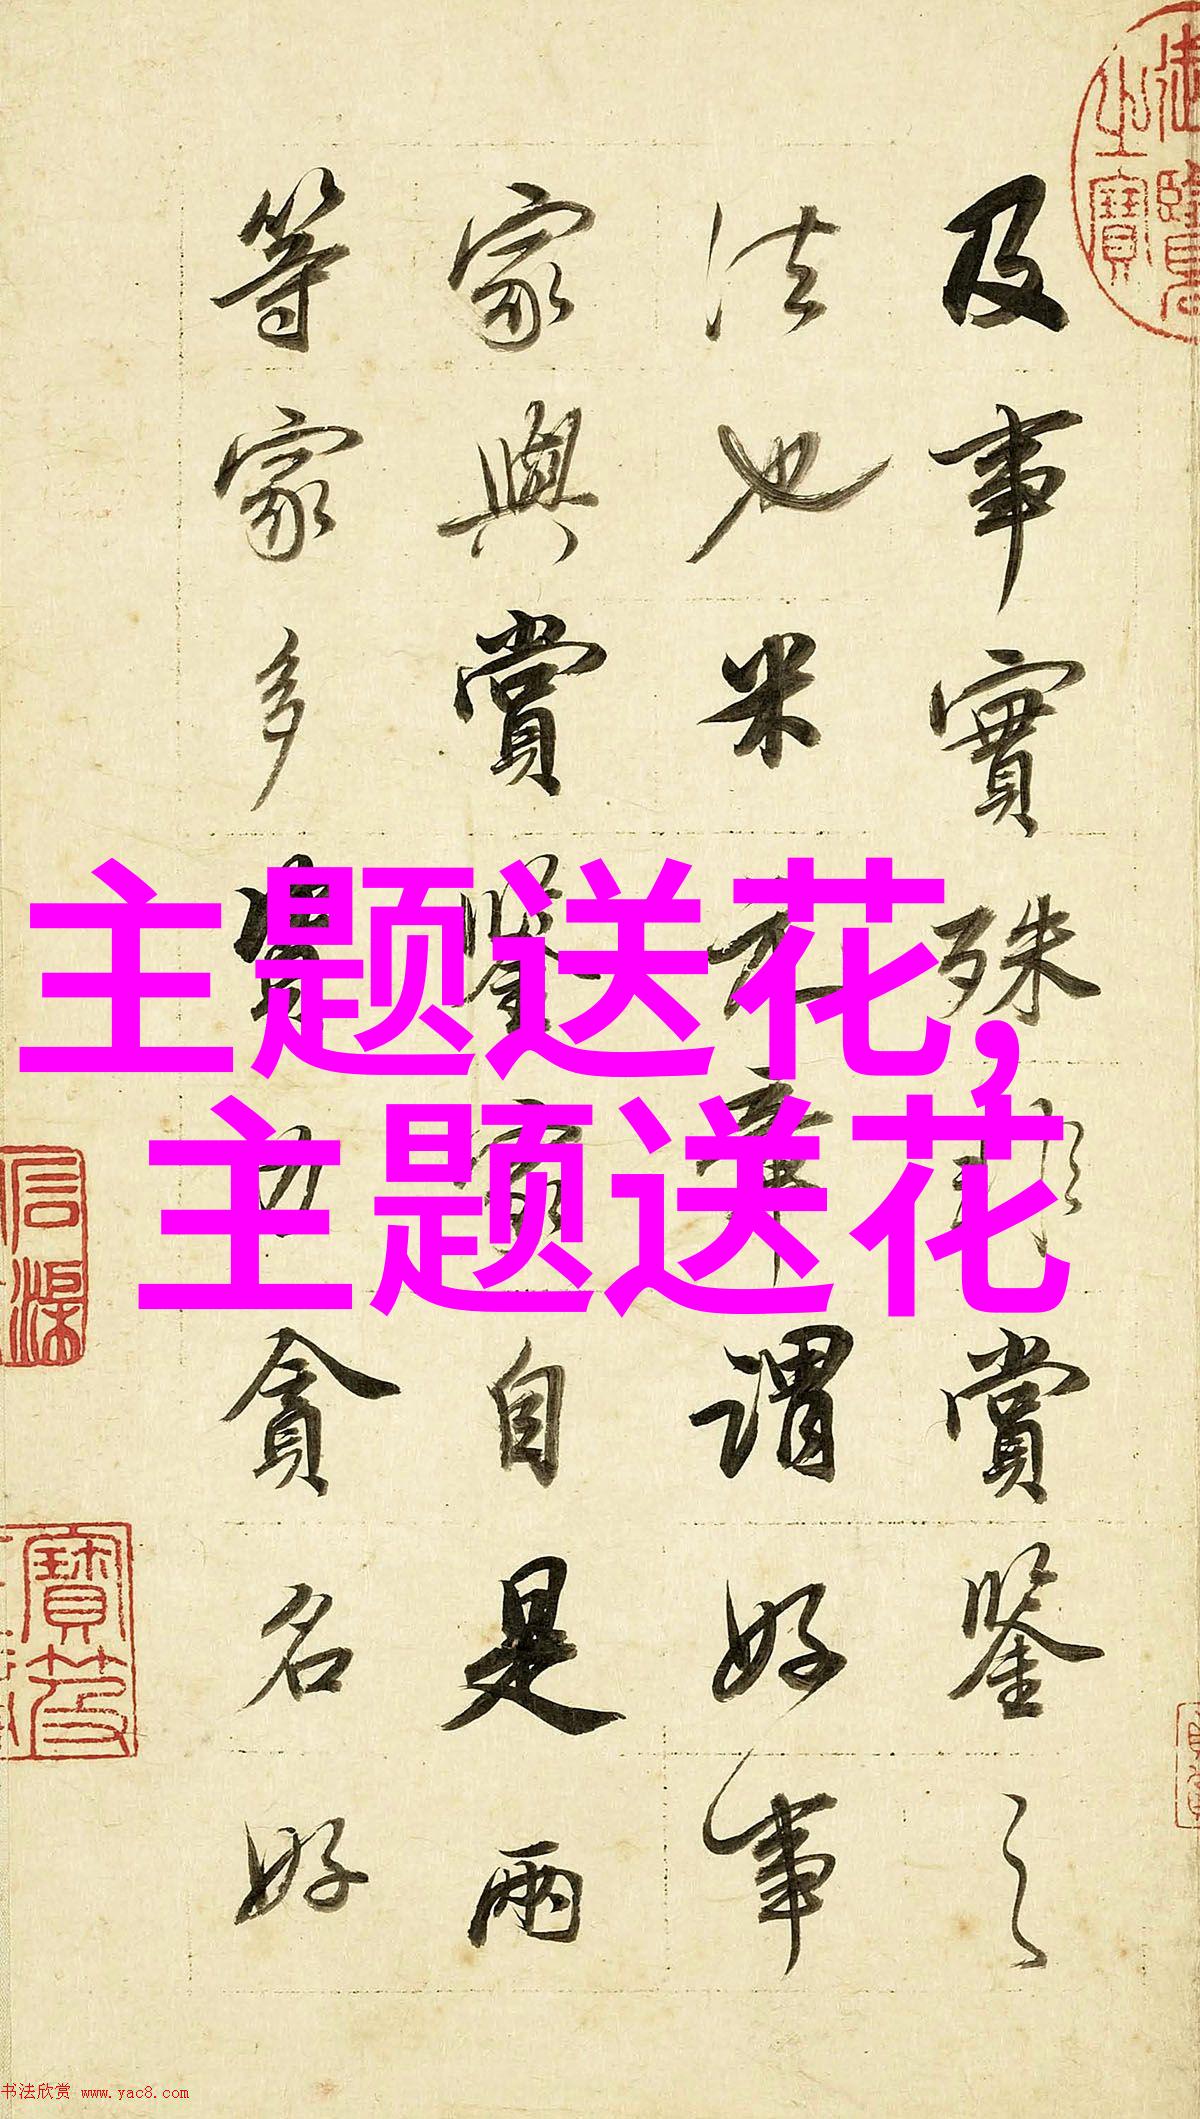 及事實殊賞鑒之
法也米謂好事
家與賞鑒家自是兩
等家多貪名好
主题送花,
主题送花
御覽之寶
书法欣赏 www.yac8.com